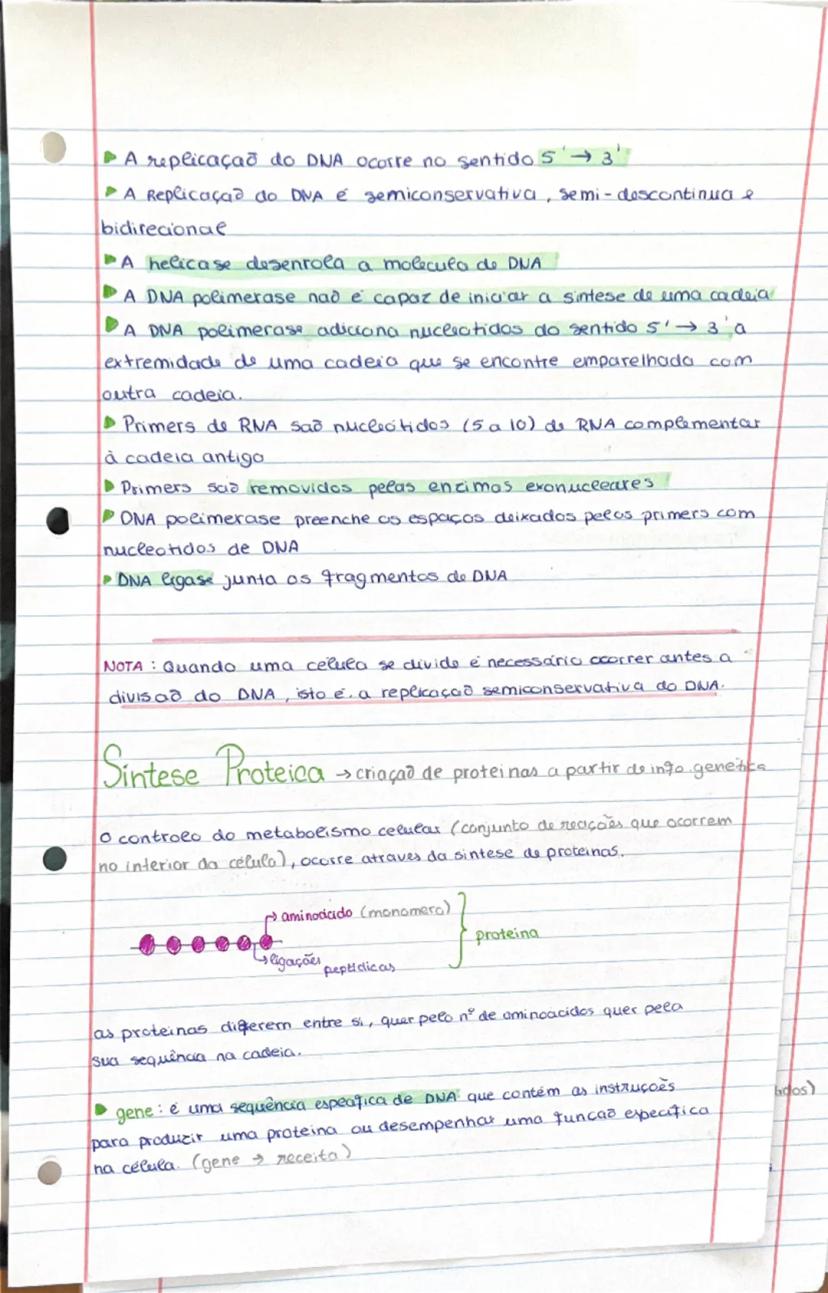 ▶ A replicação do DNA ocorre no sentido 5' → 3'
▶ A Replicação do DNA é semiconservativa, semi-descontinua e
bidirecional
▶ A helicase desenrola a molecula de DNA
▶ A DNA polimerase não é capaz de iniciar a síntese de uma cadeia
▶ A DNA polimerase adiciona nucleotidos do sentido 5' → 3' a
extremidade de uma cadeia que se encontre emparelhada com
outra cadeia.
▶ Primers de RNA são nucleótidos (5 a 10) de RNA complementar
à cadeia antiga
▶ Primers são removidos pelas enzimas exonucleares
▶ DNA polimerase preenche os espaços deixados pelos primers com
nucleotidos de DNA
▶ DNA ligase junta os fragmentos de DNA
NOTA : Quando uma célula se divide é necessário ocorrer antes a
divisão do DNA, isto é, a replicação semiconservativa do DNA.
Síntese Proteica → criação de proteinas a partir de info genética
O controlo do metabolismo celular (conjunto de reações que ocorrem
no interior da célula), ocorre atraves da sintese de proteinas.
aminoácido (monomero)
proteina
ligações peptidicas
as proteinas diferem entre si, quer pelo nº de aminoacidos quer pela
sua sequência na cadeia.
▶ gene: é uma sequência especifica de DNA que contém as instruções
para produzir uma proteina ou desempenhar uma função especifica
na célula. (gene → receita)